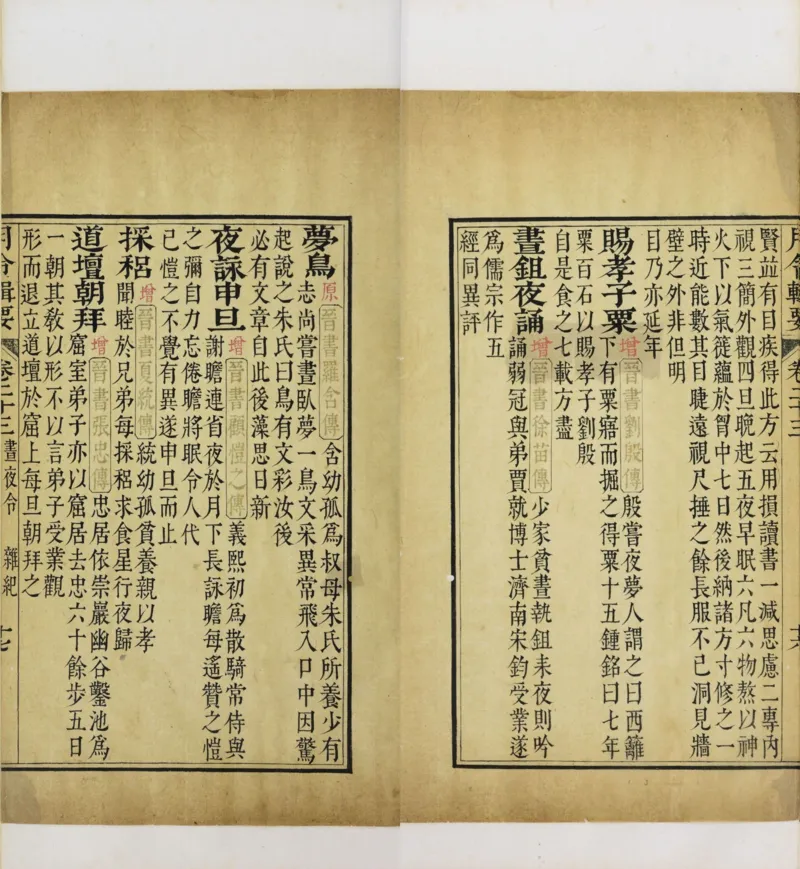 月令輯要 卷二十三 十六
賢並有目疾得此方云用損讀書一減思慮二專內
視三簡外觀四旦晩起五夜早眠六凡六物熬以神
火下以氣簁蘊於胷中七日然後納諸方寸修之一
時近能數其目睫遠視尺捶之餘長服不已洞見牆
壁之外非但明
目乃亦延年
賜孝子粟 增 晉書劉殷傳 殷嘗夜夢人謂之曰西籬
下有粟寤而掘之得粟十五鍾銘曰七年
粟百石以賜孝子劉殷
自是食之七載方盡
晝鉏夜誦 增 晉書徐苗傳 少家貧晝執鉏耒夜則吟
誦弱冠與弟賈就博士濟南宋鈞受業遂
爲儒宗作五
經同異評
夢鳥 原 晉書羅含傳 含幼孤爲叔母朱氏所養少有
志尚嘗晝臥夢一鳥文采異常飛入口中因驚
起說之朱氏曰鳥有文彩汝後
必有文章自此後藻思日新
夜詠申旦 增 晉書顧愷之傳 義熙初爲散騎常侍與
謝瞻連省夜於月下長詠瞻每遙贊之愷
之彌自力忘倦瞻將眠令人代
己愷之不覺有異遂申旦而止
採稆 增 晉書夏統傳 統幼孤貧養親以孝
聞睦於兄弟每採稆求食星行夜歸
道壇朝拜 增 晉書張忠傳 忠居依崇巖幽谷鑿池爲
窟室弟子亦以窟居去忠六十餘步五日
一朝其敎以形不以言弟子受業觀
形而退立道壇於窟上每旦朝拜之
月令輯要 卷二十三 晝夜令 雜紀 十七